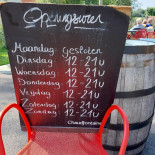 Openingsuren
Maandag: gesloten
Dinsdag 12-21u
Woensdag 12-21u
Donderdag 12-21u
Vrijdag 12-21u
Zaterdag 12-21u
Zondag 12-21u